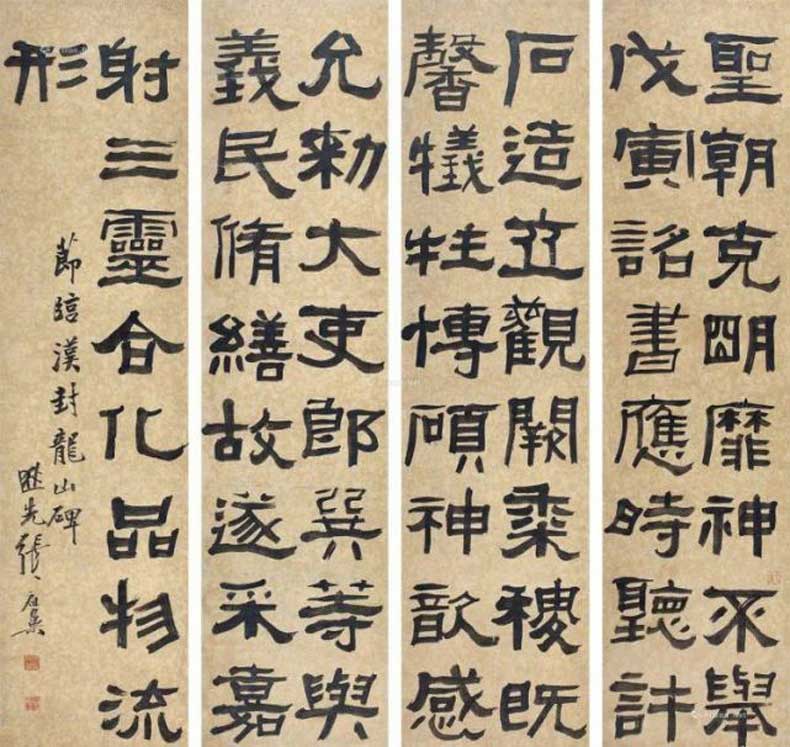 聖朝克明靡神不舉
戊寅詔書應時聽許
石造立觀闕黍稷既
馨犧牲博碩神歆感
允勑大吏郎巽等與
義民脩繕故遂采嘉
射三靈合化品物流
形
節臨漢封龍山碑
先張